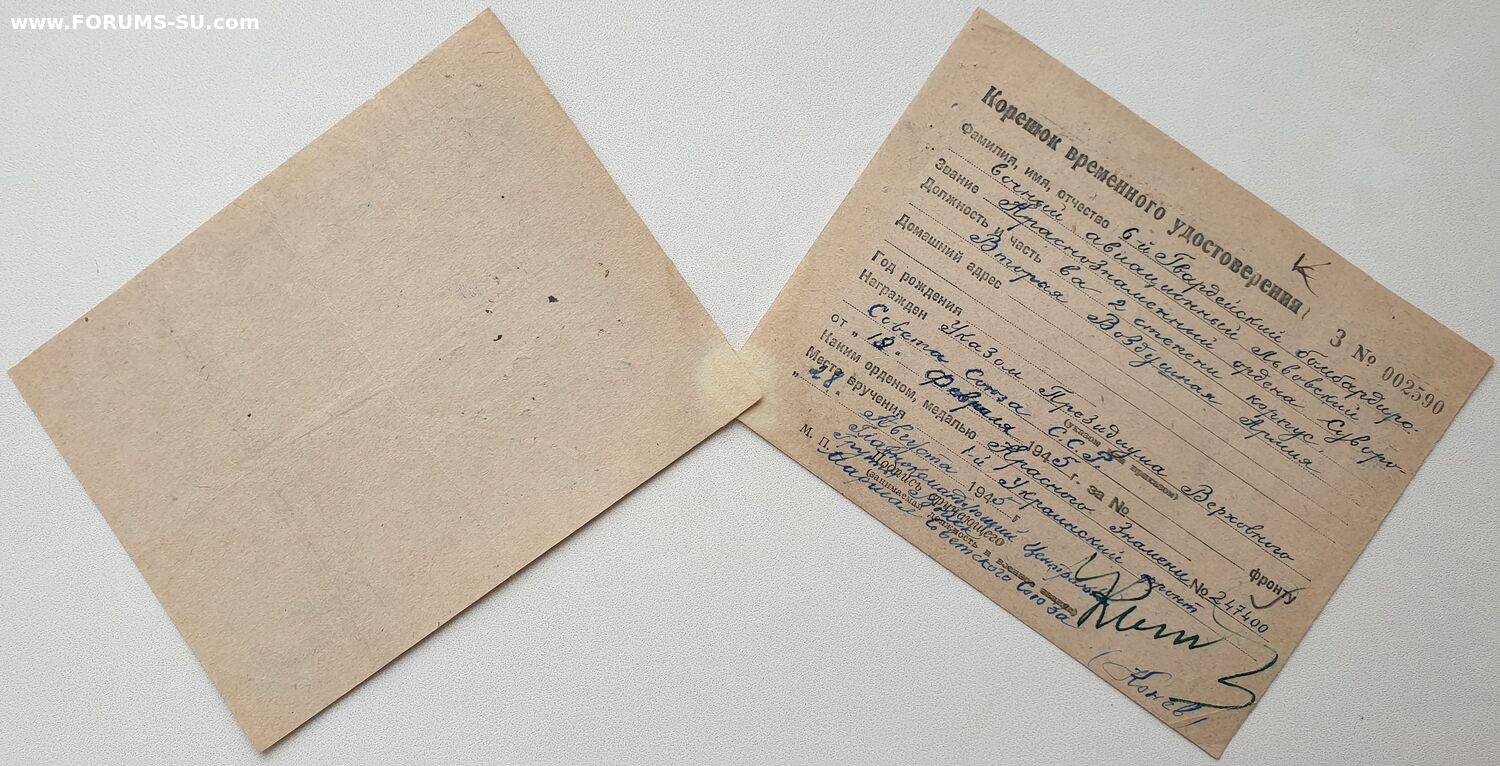 www.FORUMS-SU.com
Корешюк временного удостоверения
З № 002590
Фамилия, имя, отчество 6й Гвардейский бомбардиро-
вочный авиационный Львовский
Звание Краснознаменный ордена Суворо-
Должность и часть ва 2 степени корпус,
Вторая Воздушная Армия
Домашний адрес
Год рождения
Награжден Указом Президиума Верховного
(указом или приказом)
Совета Союза ССР.
от „ 19 “ Февраля 1945 г. за № фронту
Каким орденом, медалью Красного Знамени № 247400
Место вручения 1й Украинский фронт
„ 28 “ Августа 1945 г
М. П. Подпись вручающего
Главнокомандующий
Группы Войск
Маршал Советского Союза
(Конев)